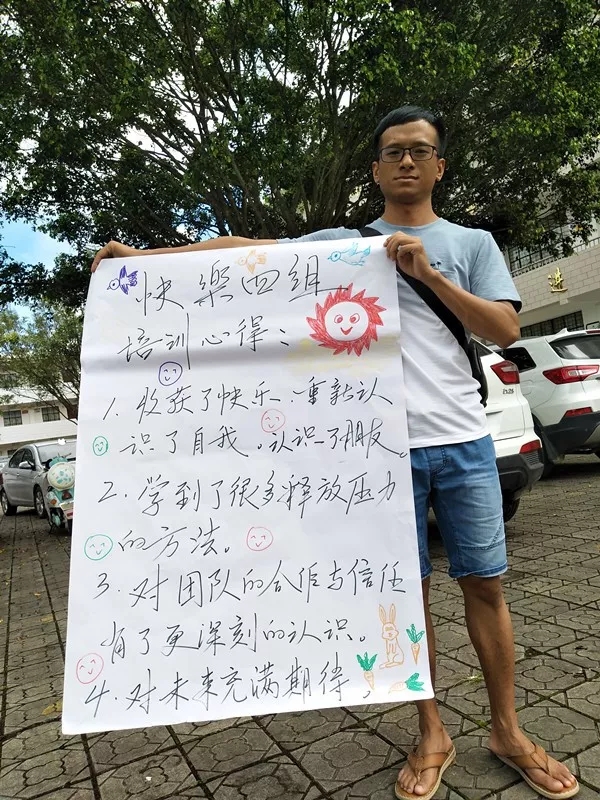 快樂四组
培训心得：
1、收获了快乐、重新认
识了自我。认识了朋友。
2、学到了很多释放压力
的方法。
3、对团队的合作与信任
有了更深刻的认识。
4、对未来充满期待，